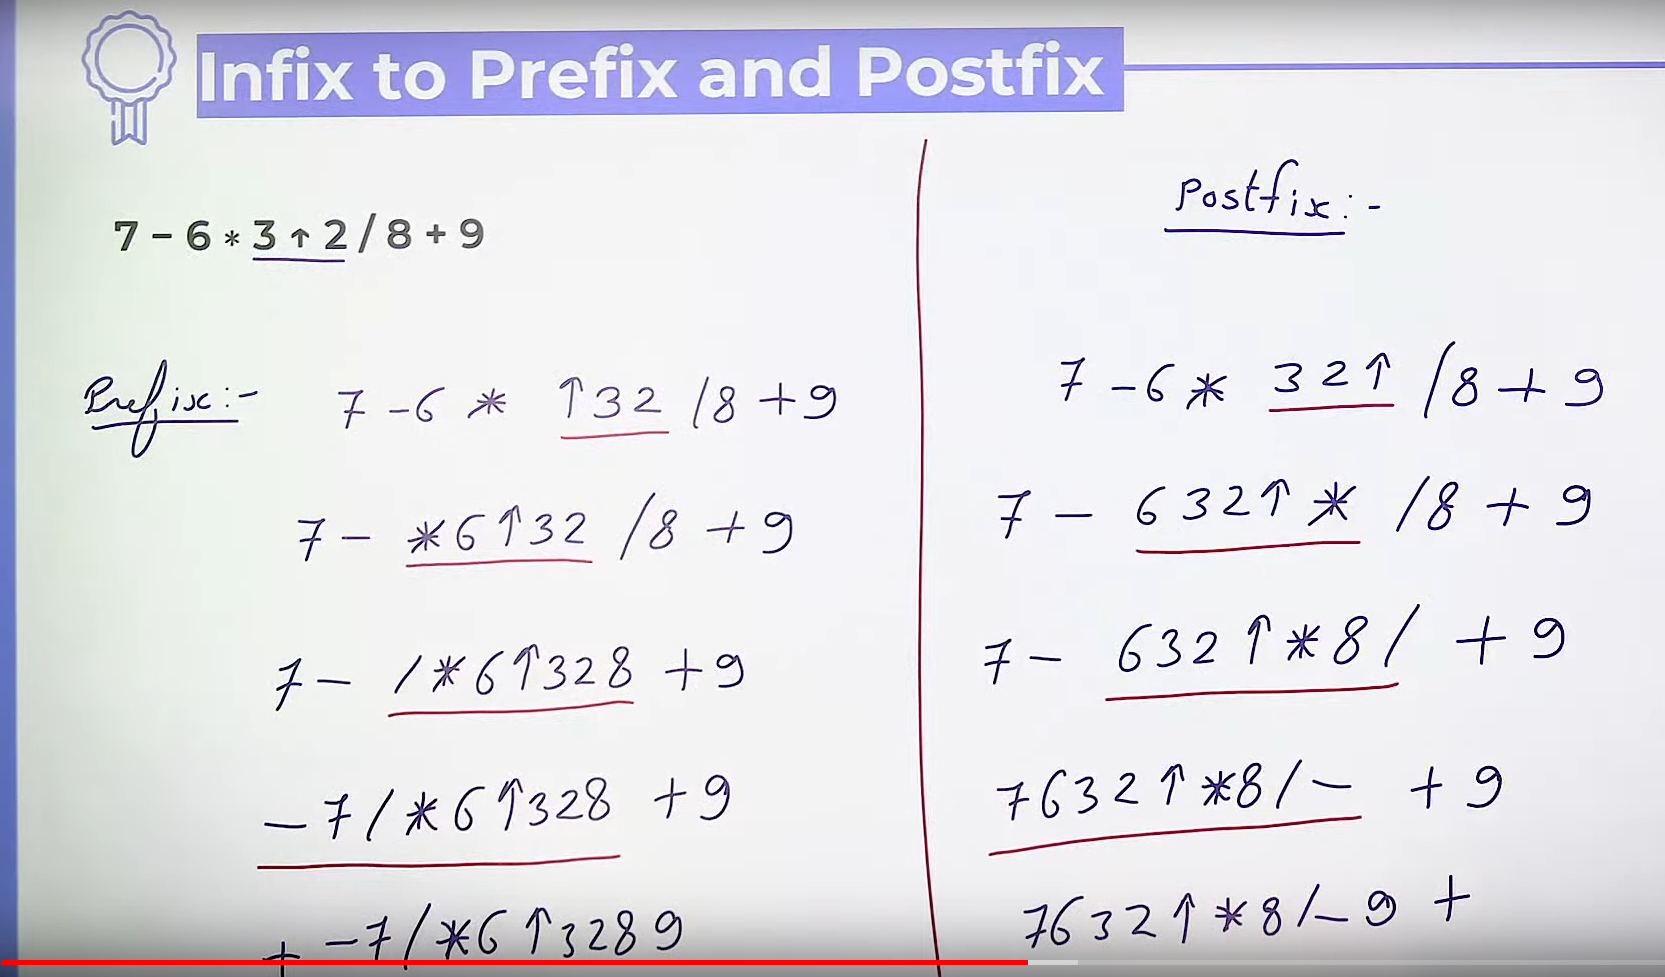 Infix to Prefix and Postfix
7 - 6 * 3 ↑ 2 / 8 + 9
Prefix:-
7 - 6 * ↑ 3 2 / 8 + 9
7 - * 6 ↑ 3 2 / 8 + 9
7 - / * 6 ↑ 3 2 8 + 9
- 7 / * 6 ↑ 3 2 8 + 9
+ - 7 / * 6 ↑ 3 2 8 9
Postfix:-
7 - 6 * 3 2 ↑ / 8 + 9
7 - 6 3 2 ↑ * / 8 + 9
7 - 6 3 2 ↑ * 8 / + 9
7 6 3 2 ↑ * 8 / - + 9
7 6 3 2 ↑ * 8 / - 9 +